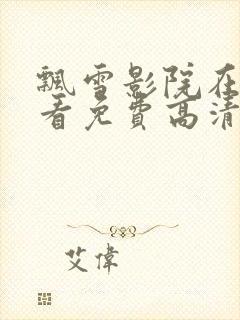 飄雪影院在
看免費高清
艾偉